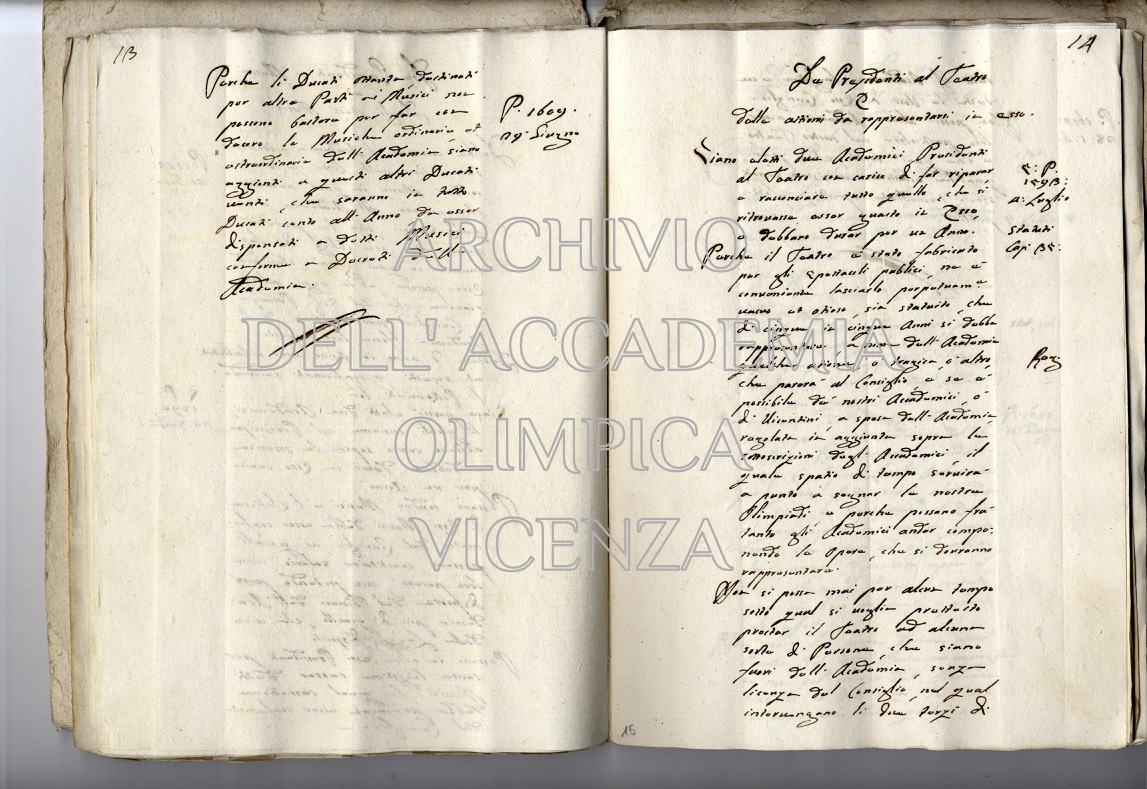 13
Perche li Ducati ottanta destinati
per altre Parti ai Musici non
possono bastare per far con
decoro le Musiche ordinarie et
estraordinarie dell'Academia siano
aggionti a questi altri Ducati
venti, che saranno in tutto
Ducati cento all'Anno da esser
dispensati a detti Musici
conforme a Decreti dell'A-
cademia.
P. 1609.
29 Giugno
14
De Presidenti al Teatro
E
delle attioni da rappresentarsi in esso.
Siano eletti due Academici Presidenti
al Teatro con carico di far riparar
e racconciare tutto quello, che si
ritrovasse esser guasto in Esso,
e debbano durar per un Anno.
Perche il Teatro è stato fabricato
per gli spettacoli publici, ne è
conveniente lasciarlo perpetuam.e
vacuo et otioso, sia statuito, che
di cinque in cinque Anni si debba
rappresentare a nome dell'Academia
qualche attione, ò tragica, ò altro,
che parerà al Consiglio, e se è
possibile de nostri Academici, ò
di Vicentini, a spese dell'Academia
regolata in aggiunta sopra le
sottoscrizioni degl'Academici, il
quale spatio di tempo servirà
a punto a segnar le nostre
Olimpiadi, e perche possano frà
tanto gli Academici andar compo-
nendo le Opere, che si dovranno
rappresentare.
Non si possa mai per alcun tempo
sotto qual si voglia pretesto
prestar il Teatro ad alcuna
sorte di Persone, che siano
fuori dell'Academia, senza
licenza del Consiglio, nel qual
intervengano li due terzi di
P.
1593:
4: Luglio
Statuti
Cap: 35:
15
ARCHIVIO
DELL'ACCADEMIA
OLIMPICA
VICENZA